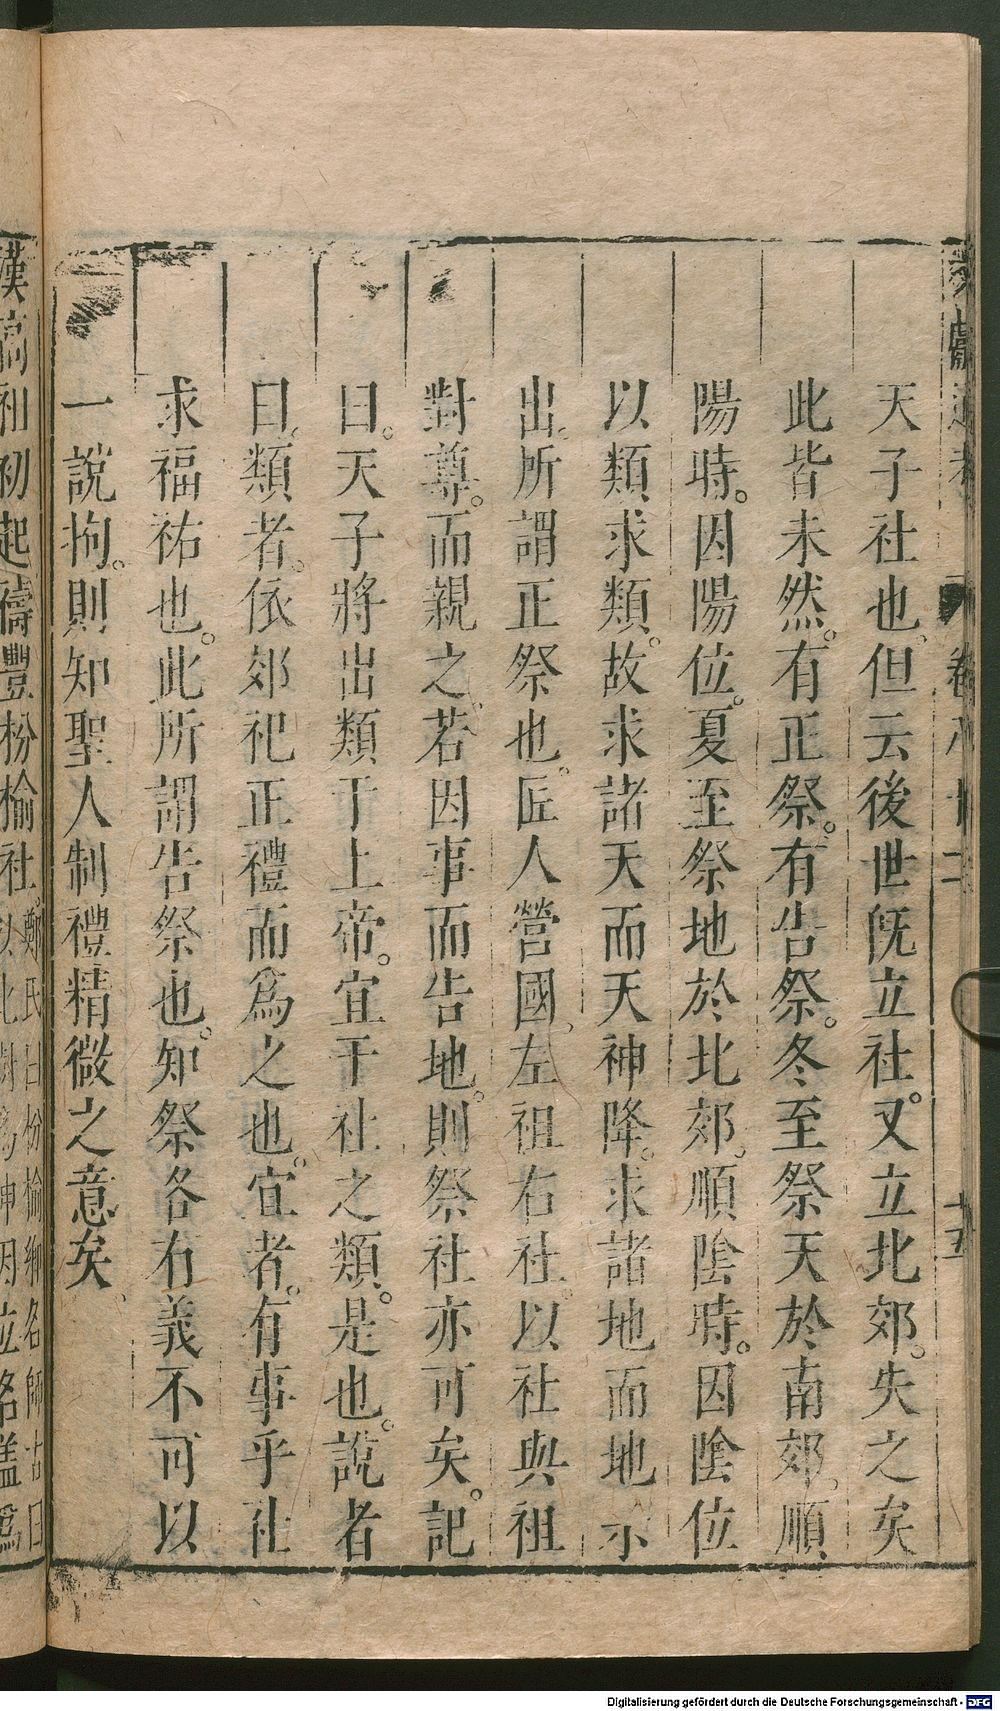 天子社也但云後世旣立社又立北郊失之矣
此皆未然有正祭有告祭冬至祭天於南郊順
陽時因陽位夏至祭地於北郊順陰時因陰位
以類求類故求諸天而天神降求諸地而地示
出所謂正祭也匠人營國左祖右社以社與祖
對尊而親之若因事而告地則祭社亦可矣記
曰天子將出類于上帝宜于社之類是也說者
曰類者依郊祀正禮而爲之也宜者有事乎社
求福祐也此所謂告祭也知祭各有義不可以
一說拘則知聖人制禮精微之意矣
漢高祖初起禱豐枌榆社
卷八十二
十五
Digitalisierung gefördert durch die Deutsche Forschungsgemeinschaft - DFG